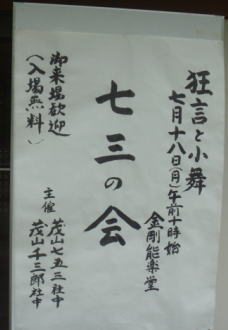 狂言と小舞
七月十八日(月)午前十時始
金剛能楽堂
七三の会
御来場歓迎
(入場無料)
主催
茂山七五三社中
茂山千三郎社中